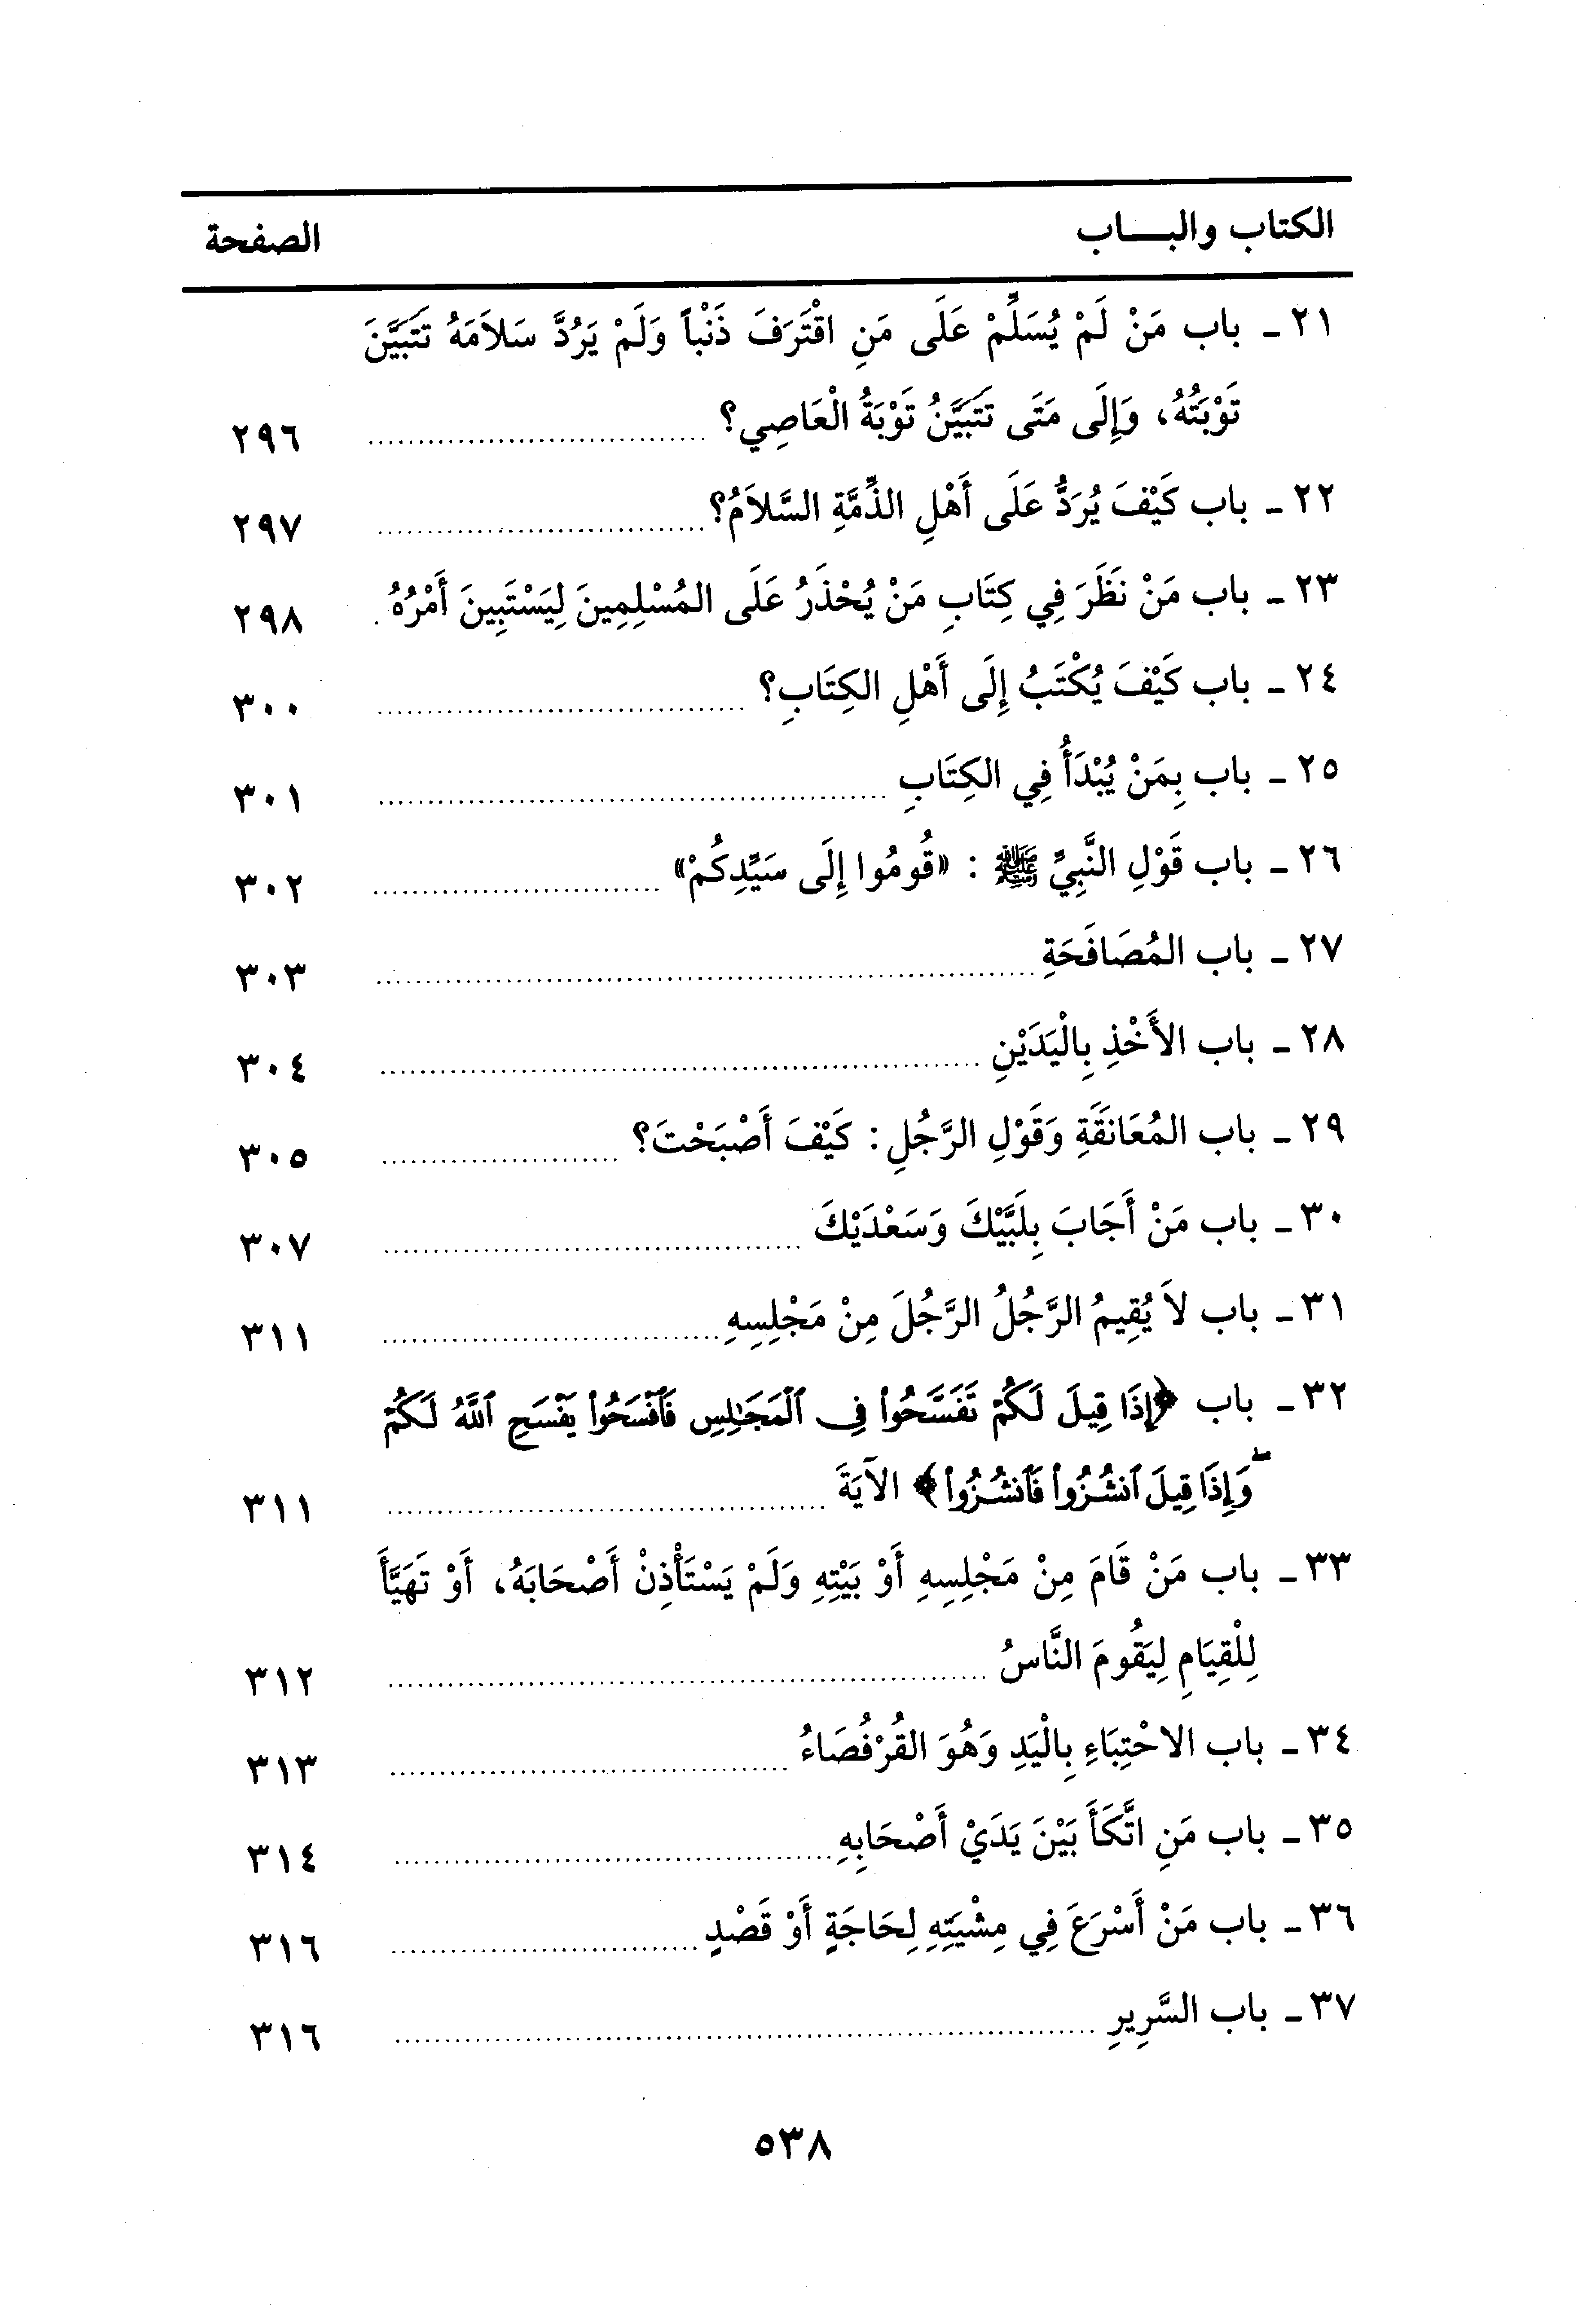 الكتاب والبـــاب الصفحة
٢١ ـ باب مَنْ لَمْ يُسَلِّمْ عَلَى مَنِ اقْتَرَفَ ذَنْباً وَلَمْ يَرُدَّ سَلاَمَهُ تَتَبَيَّنَ
تَوْبَتُهُ، وَإِلَى مَتَى تَتَبَيَّنُ تَوْبَةُ الْعَاصِي؟ ........ ٢٩٦
٢٢ ـ باب كَيْفَ يُرَدُّ عَلَى أَهْلِ الذِّمَّةِ السَّلاَمُ؟ ........ ٢٩٧
٢٣ ـ باب مَنْ نَظَرَ فِي كِتَابِ مَنْ يُحْذَرُ عَلَى المُسْلِمِينَ لِيَسْتَبِينَ أَمْرُهُ . ٢٩٨
٢٤ ـ باب كَيْفَ يُكْتَبُ إِلَى أَهْلِ الكِتَابِ؟ ........ ٣٠٠
٢٥ ـ باب بِمَنْ يُبْدَأُ فِي الكِتَابِ ........ ٣٠١
٢٦ ـ باب قَوْلِ النَّبِيِّ ﷺ : «قُومُوا إِلَى سَيِّدِكُمْ» ........ ٣٠٢
٢٧ ـ باب المُصَافَحَةِ ........ ٣٠٣
٢٨ ـ باب الأَخْذِ بِالْيَدَيْنِ ........ ٣٠٤
٢٩ ـ باب المُعَانَقَةِ وَقَوْلِ الرَّجُلِ: كَيْفَ أَصْبَحْتَ؟ ........ ٣٠٥
٣٠ ـ باب مَنْ أَجَابَ بِلَبَّيْكَ وَسَعْدَيْكَ ........ ٣٠٧
٣١ ـ باب لاَ يُقِيمُ الرَّجُلُ الرَّجُلَ مِنْ مَجْلِسِهِ ........ ٣١١
٣٢ ـ باب ﴿إِذَا قِيلَ لَكُمْ تَفَسَّحُواْ فِى ٱلْمَجَـٰلِسِ فَٱفْسَحُواْ يَفْسَحِ ٱللَّهُ لَكُمْ
ۖ وَإِذَا قِيلَ ٱنشُزُواْ فَٱنشُزُواْ﴾ الآيَةَ ........ ٣١١
٣٣ ـ باب مَنْ قَامَ مِنْ مَجْلِسِهِ أَوْ بَيْتِهِ وَلَمْ يَسْتَأْذِنْ أَصْحَابَهُ، أَوْ تَهَيَّأَ
لِلْقِيَامِ لِيَقُومَ النَّاسُ ........ ٣١٢
٣٤ ـ باب الاحْتِبَاءِ بِالْيَدِ وَهُوَ القُرْفُصَاءُ ........ ٣١٣
٣٥ ـ باب مَنِ اتَّكَأَ بَيْنَ يَدَيْ أَصْحَابِهِ ........ ٣١٤
٣٦ ـ باب مَنْ أَسْرَعَ فِي مِشْيَتِهِ لِحَاجَةٍ أَوْ قَصْدٍ ........ ٣١٦
٣٧ ـ باب السَّرِيرِ ........ ٣١٦
٥٣٨